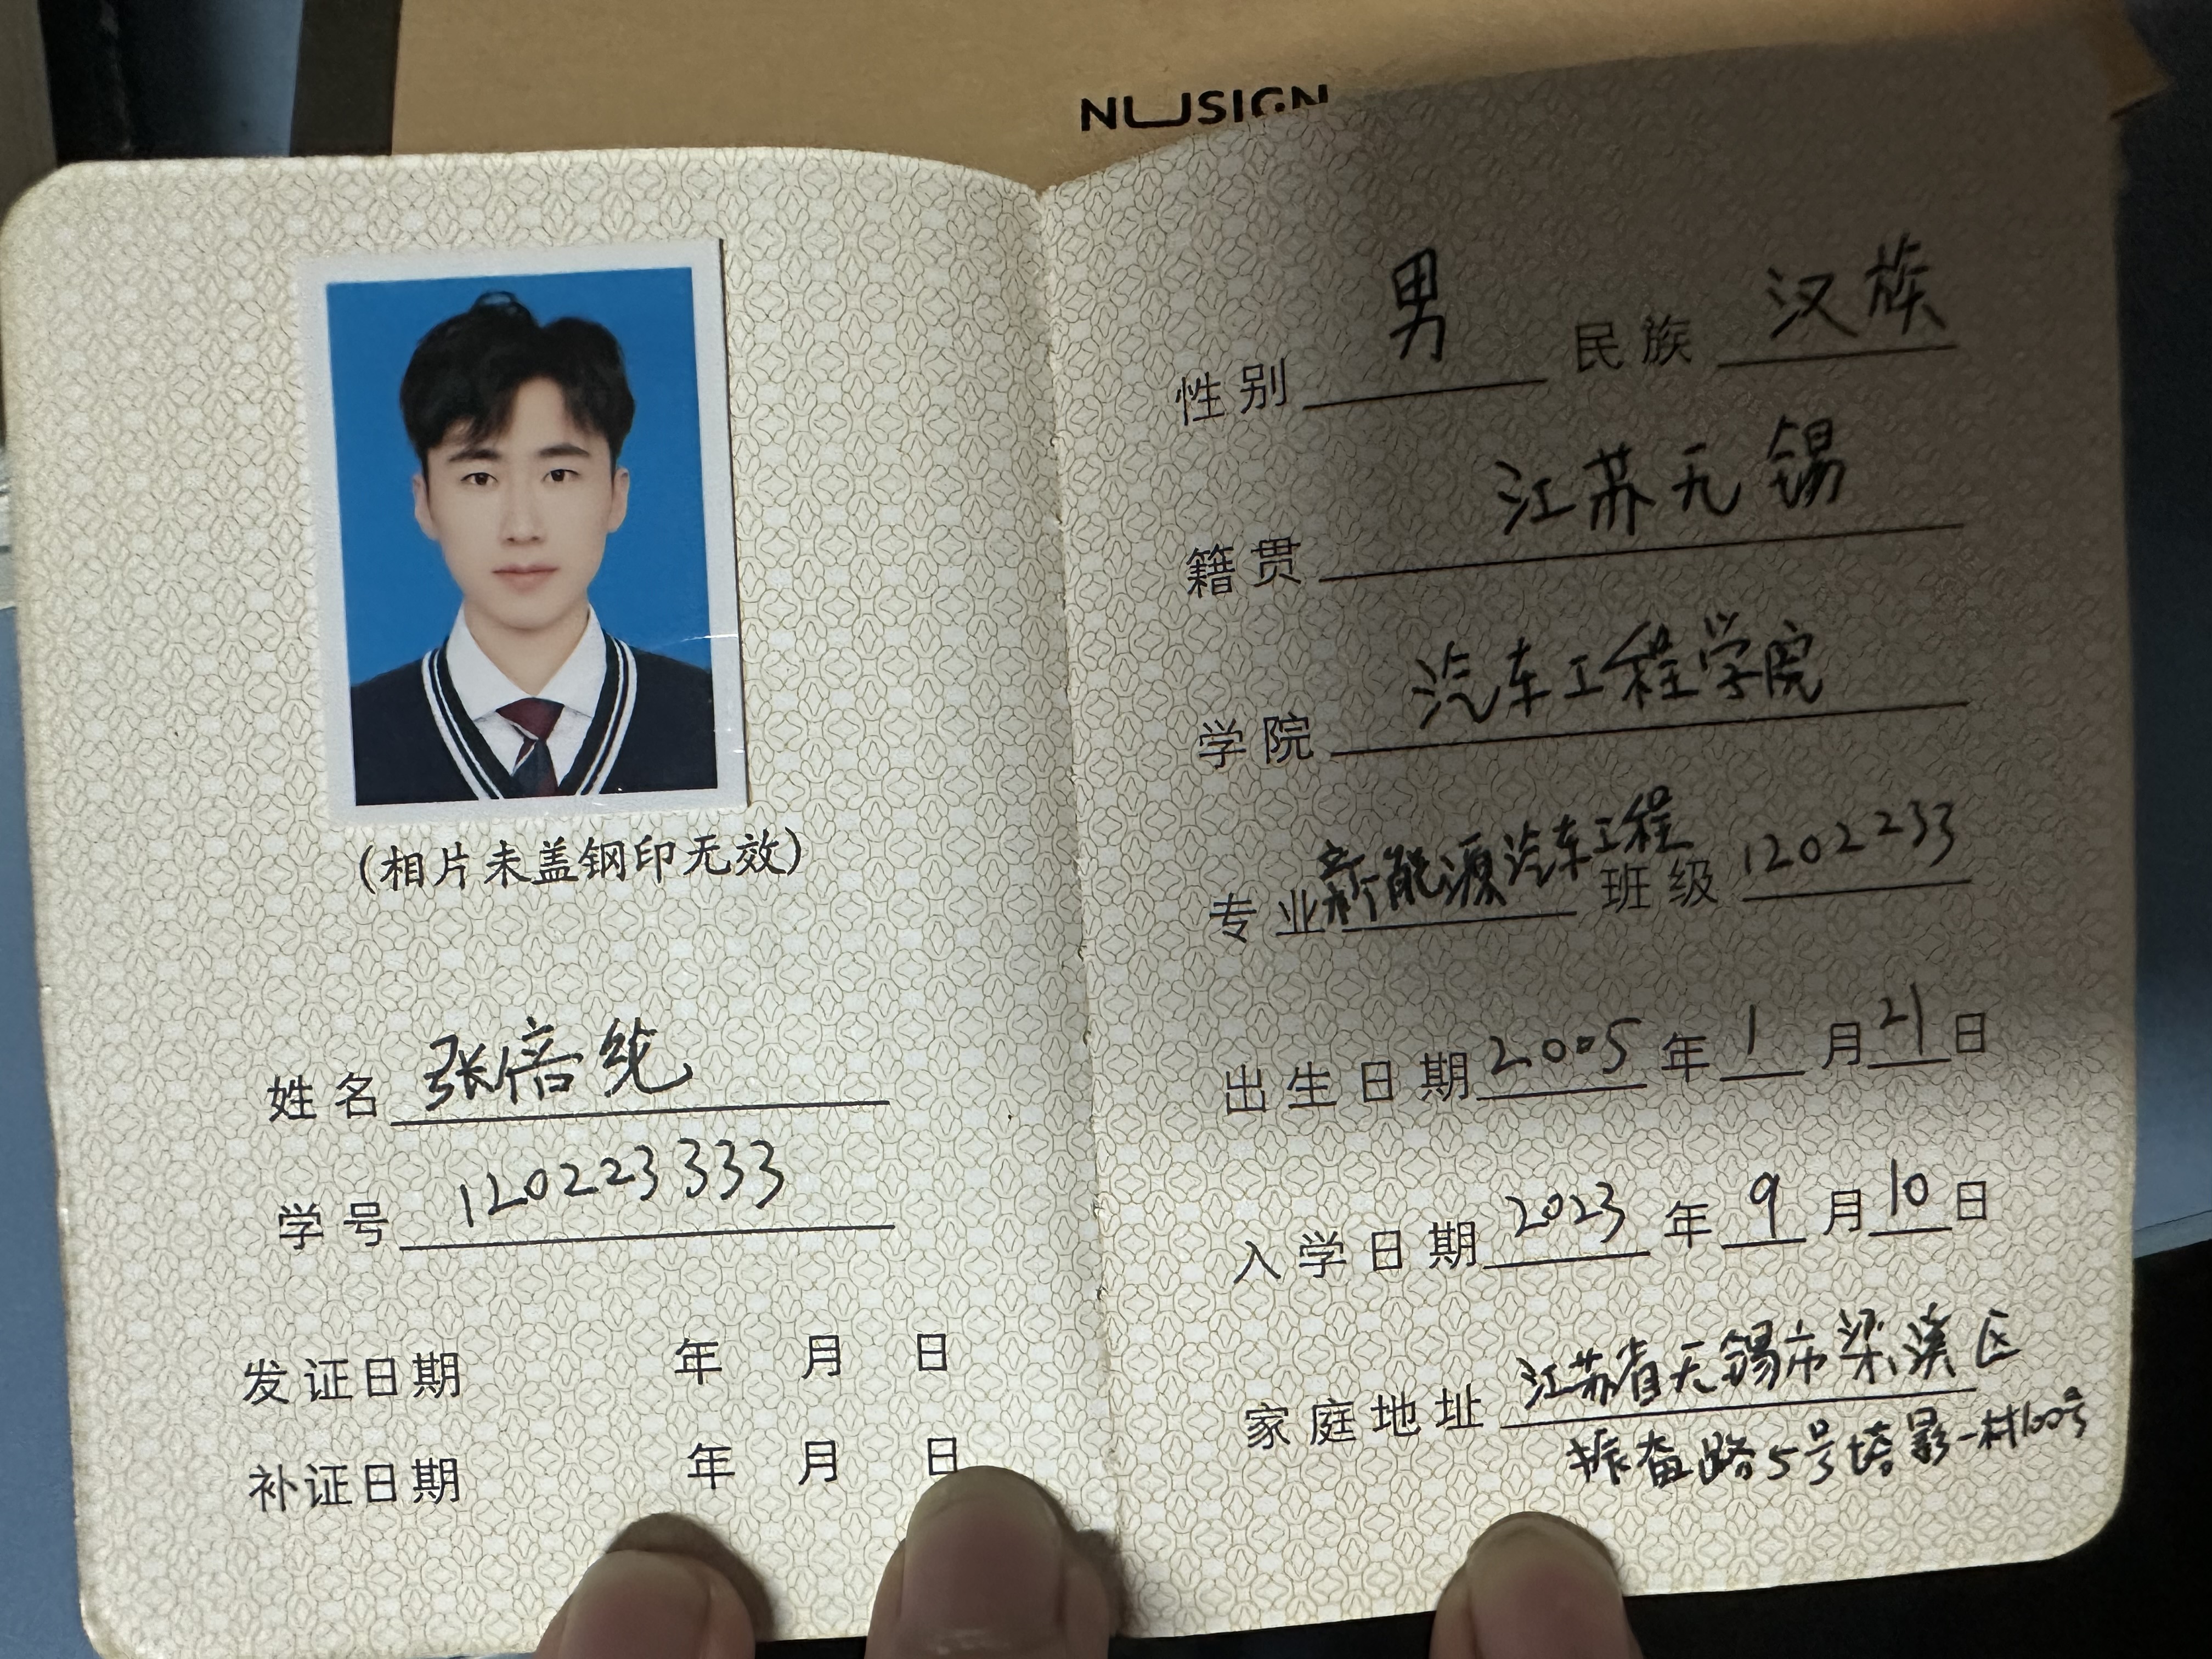 NUSIGN
(相片未盖钢印无效)
姓名 张倍统
学号 120223333
发证日期 年 月 日
补证日期 年 月 日
性别 男 民族 汉族
籍贯 江苏无锡
学院 汽车工程学院
专业 新能源汽车工程 班级 1202233
出生日期 2005 年 1 月 21 日
入学日期 2023 年 9 月 10 日
家庭地址 江苏省无锡市梁溪区
振奋路5号塔影一村100号